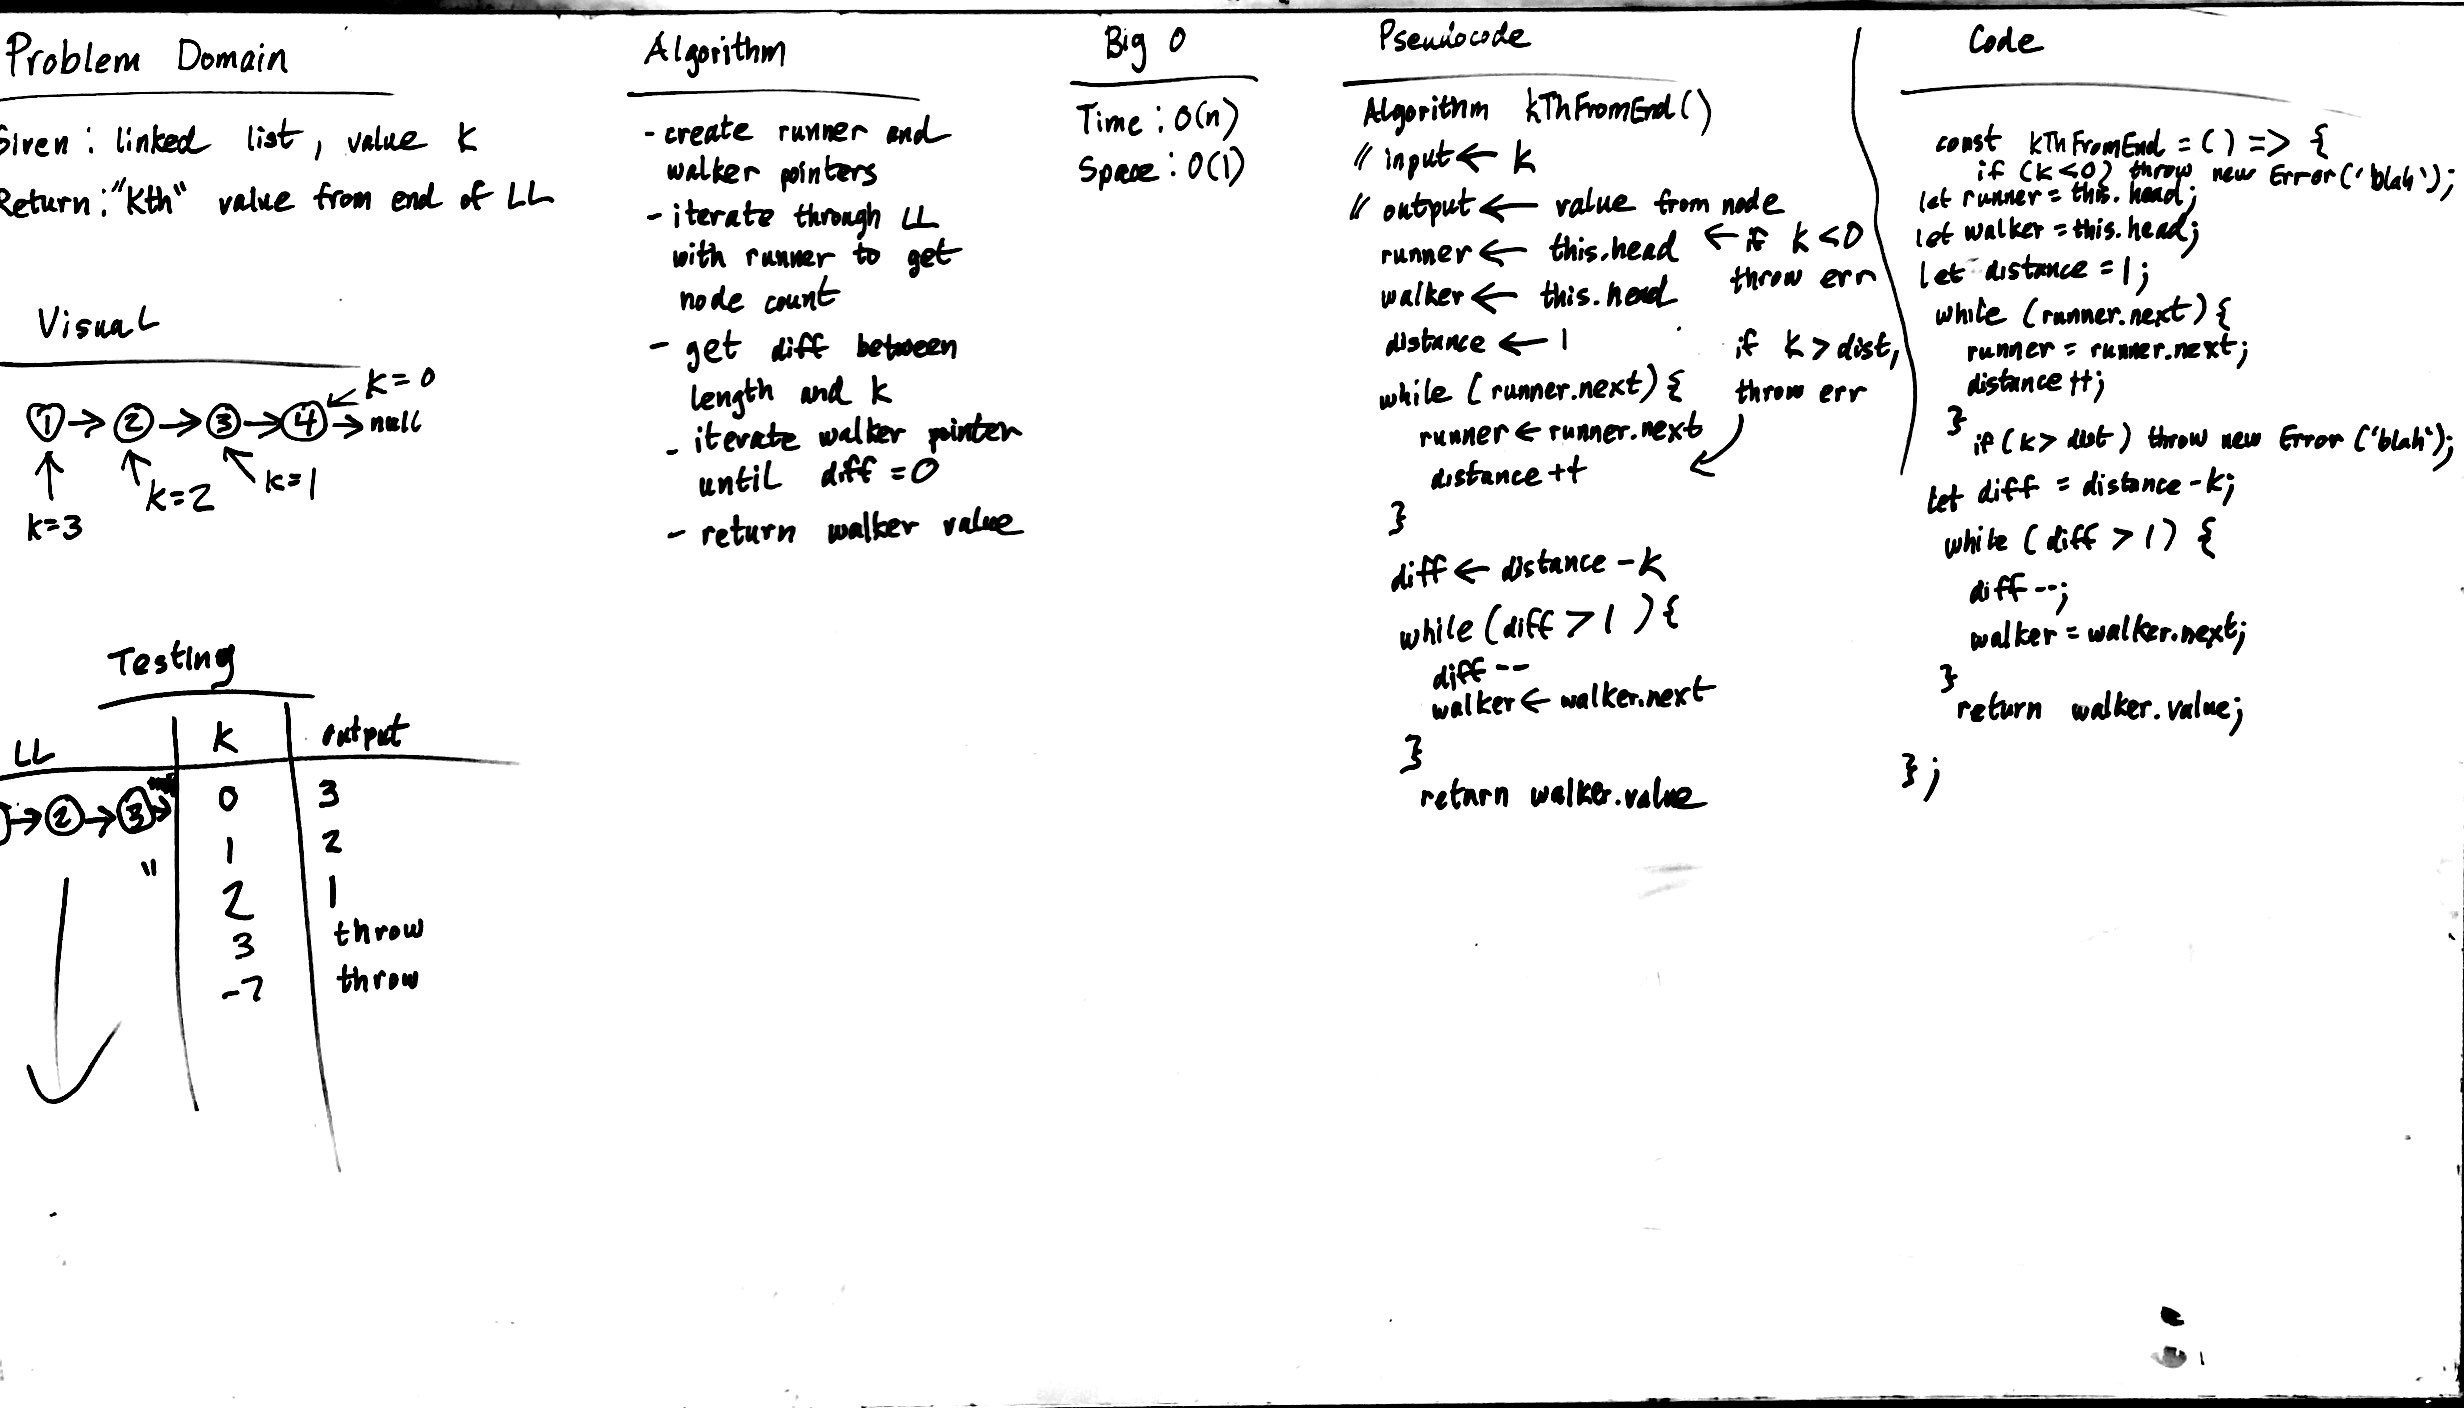 Problem Domain
Given: linked list, value k
Return: "Kth" value from end of LL
Visual
k=0
1 → 2 → 3 → 4 → null
k=3
k=2
k=1
Testing
LL
k
output
→ 2 → 3 →
0
3
"
1
2
2
1
3
throw
-7
throw
Algorithm
- create runner and
walker pointers
- iterate through LL
with runner to get
node count
- get diff between
length and k
- iterate walker pointer
until diff = 0
- return walker value
Big O
Time: O(n)
Space: O(1)
Pseudocode
Algorithm kThFromEnd()
// input ← k
// output ← value from node
runner ← this.head
← if k < 0
throw err
walker ← this.head
distance ← 1
if k > dist,
throw err
while (runner.next) {
runner ← runner.next
distance ++
}
diff ← distance - k
while (diff > 1) {
diff --
walker ← walker.next
}
return walker.value
Code
const kThFromEnd = () => {
if (k<0) throw new Error('blah');
let runner = this.head;
let walker = this.head;
let distance = 1;
while (runner.next) {
runner = runner.next;
distance ++;
}
if (k > dist) throw new Error ('blah');
let diff = distance - k;
while (diff > 1) {
diff --;
walker = walker.next;
}
return walker.value;
};